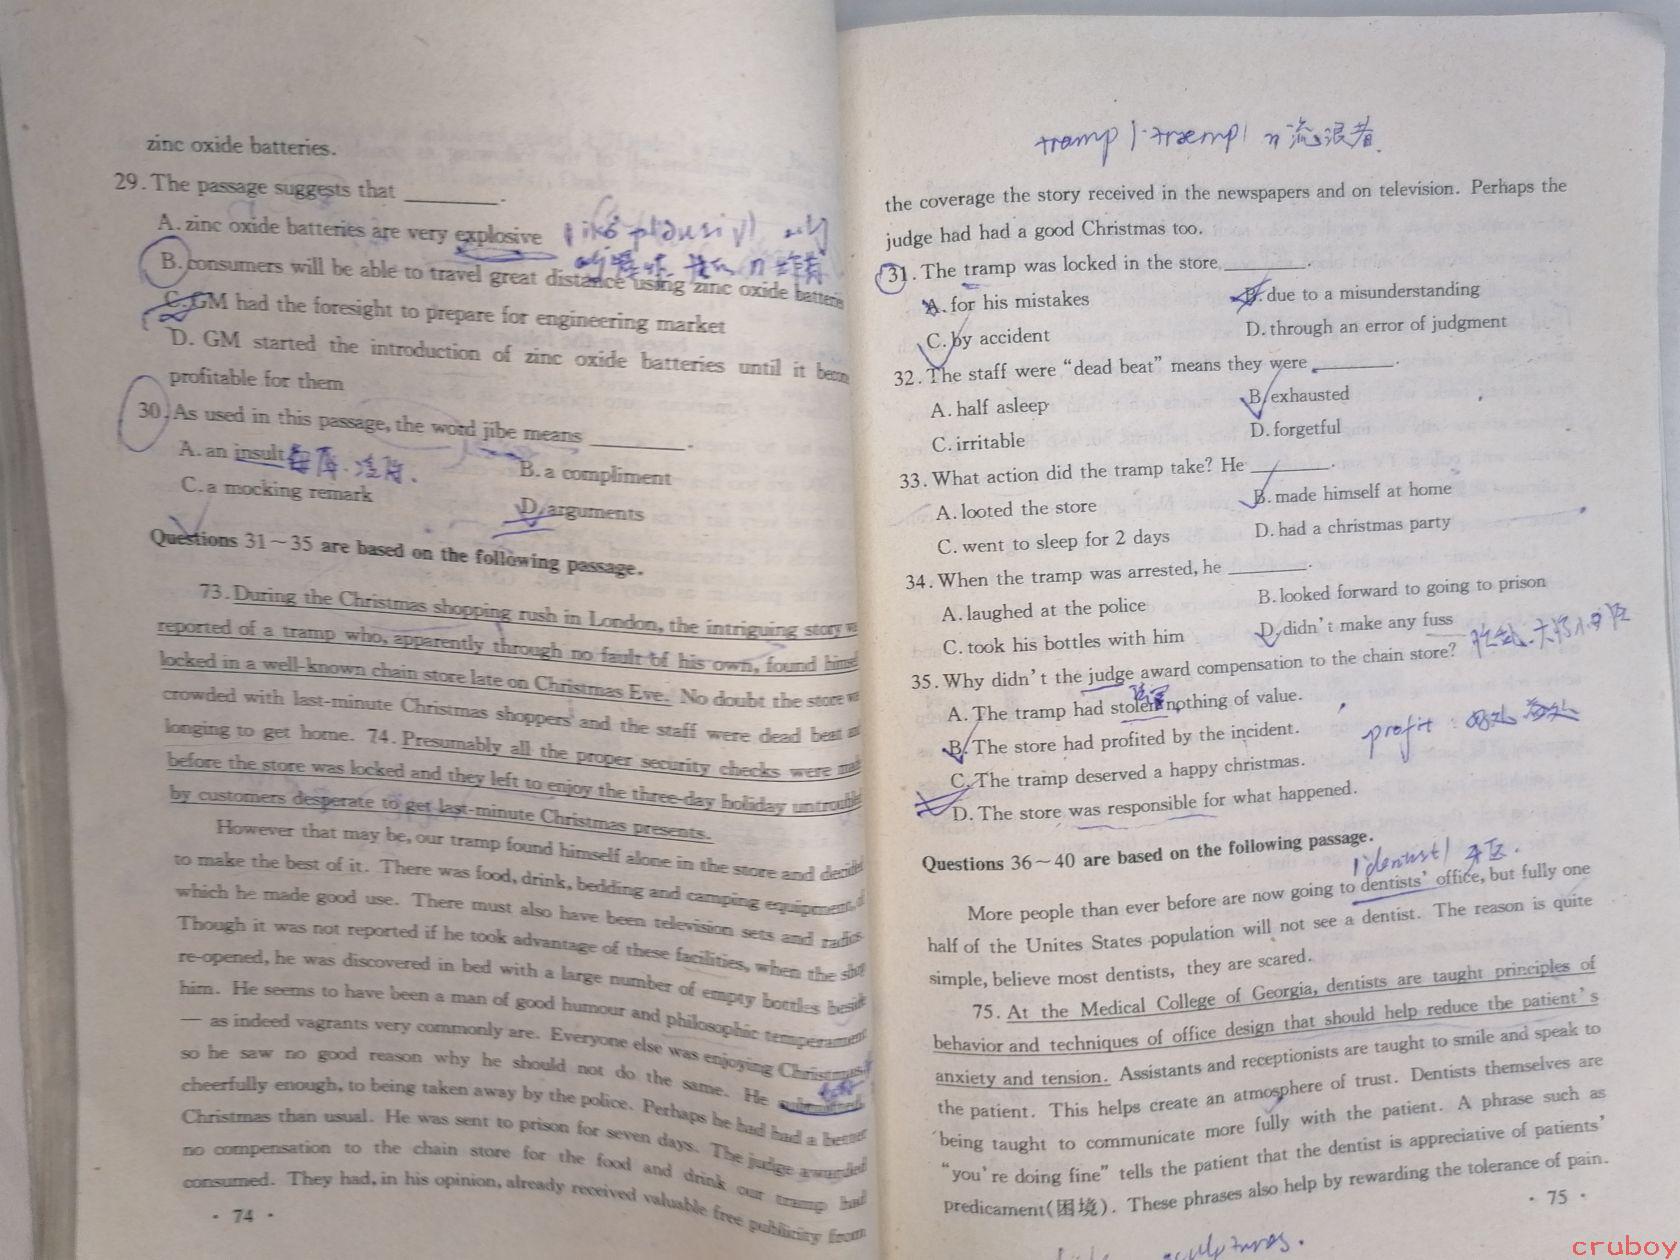 zinc oxide batteries.
29. The passage suggests that ________.
A. zinc oxide batteries are very explosive
B. consumers will be able to travel great distance using zinc oxide batteries
C. GM had the foresight to prepare for engineering market
D. GM started the introduction of zinc oxide batteries until it
profitable for them
30. As used in this passage, the word jibe means ________.
A. an insult
B. a compliment
C. a mocking remark
D. arguments
Questions 31~35 are based on the following passage.
73. During the Christmas shopping rush in London, the intriguing story
reported of a tramp who, apparently through no fault of his own, found
locked in a well-known chain store late on Christmas Eve. No doubt the store
crowded with last-minute Christmas shoppers and the staff were dead beat
longing to get home. 74. Presumably all the proper security checks were
before the store was locked and they left to enjoy the three-day holiday
by customers desperate to get last-minute Christmas presents.
However that may be, our tramp found himself alone in the store and
to make the best of it. There was food, drink, bedding and camping equipment,
which he made good use. There must also have been television sets and
Though it was not reported if he took advantage of these facilities, when the
re-opened, he was discovered in bed with a large number of empty bottles
him. He seems to have been a man of good humour and philosophic temperament
— as indeed vagrants very commonly are. Everyone else was enjoying Christmas,
so he saw no good reason why he should not do the same. He
cheerfully enough, to being taken away by the police. Perhaps he had had a better
Christmas than usual. He was sent to prison for seven days. The judge awarded
no compensation to the chain store for the food and drink our tramp had
consumed. They had, in his opinion, already received valuable free publicity from
· 74 ·
tramp n 流浪者
the coverage the story received in the newspapers and on television. Perhaps the
judge had had a good Christmas too.
31. The tramp was locked in the store ________.
A. for his mistakes
B. due to a misunderstanding
C. by accident
D. through an error of judgment
32. The staff were “dead beat” means they were ________.
A. half asleep
B. exhausted
C. irritable
D. forgetful
33. What action did the tramp take? He ________.
A. looted the store
B. made himself at home
C. went to sleep for 2 days
D. had a christmas party
34. When the tramp was arrested, he ________.
A. laughed at the police
B. looked forward to going to prison
C. took his bottles with him
D. didn’t make any fuss
35. Why didn’t the judge award compensation to the chain store?
A. The tramp had stolen nothing of value.
B. The store had profited by the incident.
profit
C. The tramp deserved a happy christmas.
D. The store was responsible for what happened.
Questions 36~40 are based on the following passage.
More people than ever before are now going to dentists’ office, but fully one
half of the Unites States population will not see a dentist. The reason is quite
simple, believe most dentists, they are scared.
75. At the Medical College of Georgia, dentists are taught principles of
behavior and techniques of office design that should help reduce the patient’s
anxiety and tension. Assistants and receptionists are taught to smile and speak to
the patient. This helps create an atmosphere of trust. Dentists themselves are
being taught to communicate more fully with the patient. A phrase such as
“you’re doing fine” tells the patient that the dentist is appreciative of patients’
predicament(困境). These phrases also help by rewarding the tolerance of pain.
· 75 ·
sculptures.
cruboy